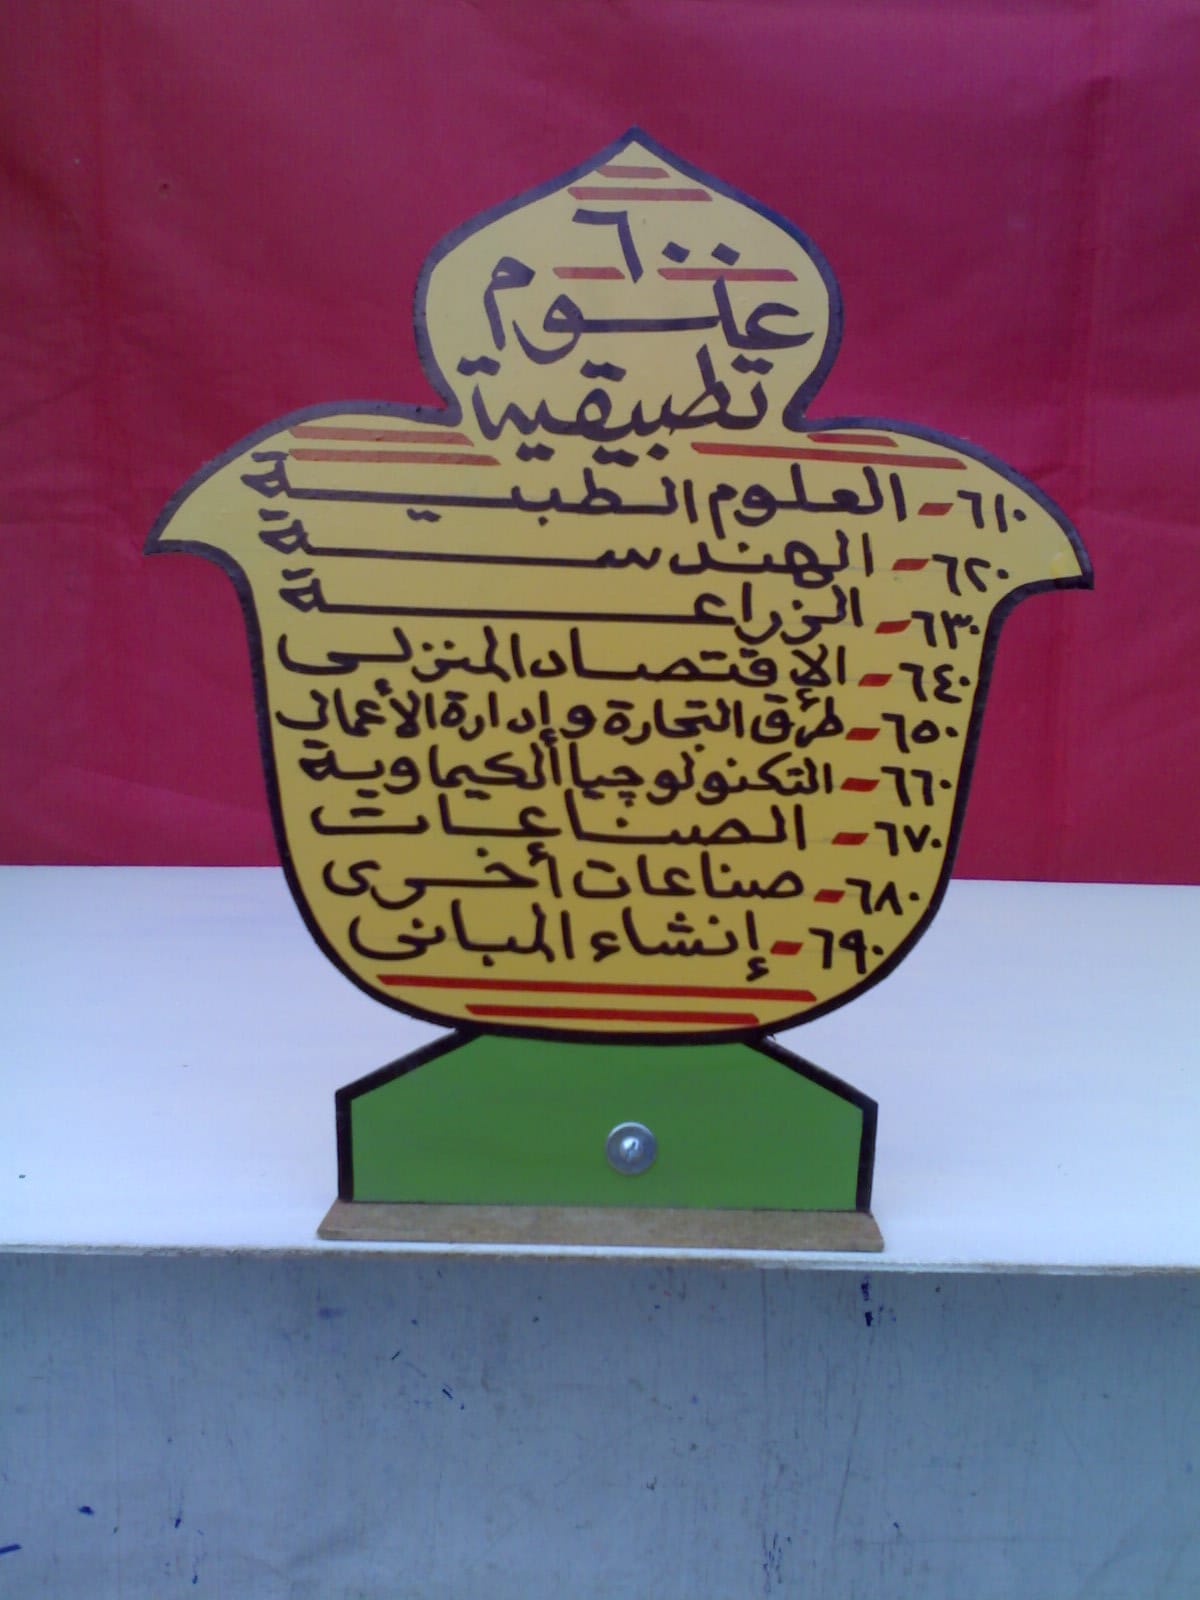 ٦٠٠
علوم
تطبيقية
٦١٠- العلوم الطبية
٦٢٠- الهندسة
٦٣٠- الزراعة
٦٤٠- الإقتصاد المنزلى
٦٥٠- طرق التجارة وإدارة الأعمال
٦٦٠- التكنولوجيا الكيماوية
٦٧٠- الصناعات
٦٨٠- صناعات أخرى
٦٩٠- إنشاء المبانى